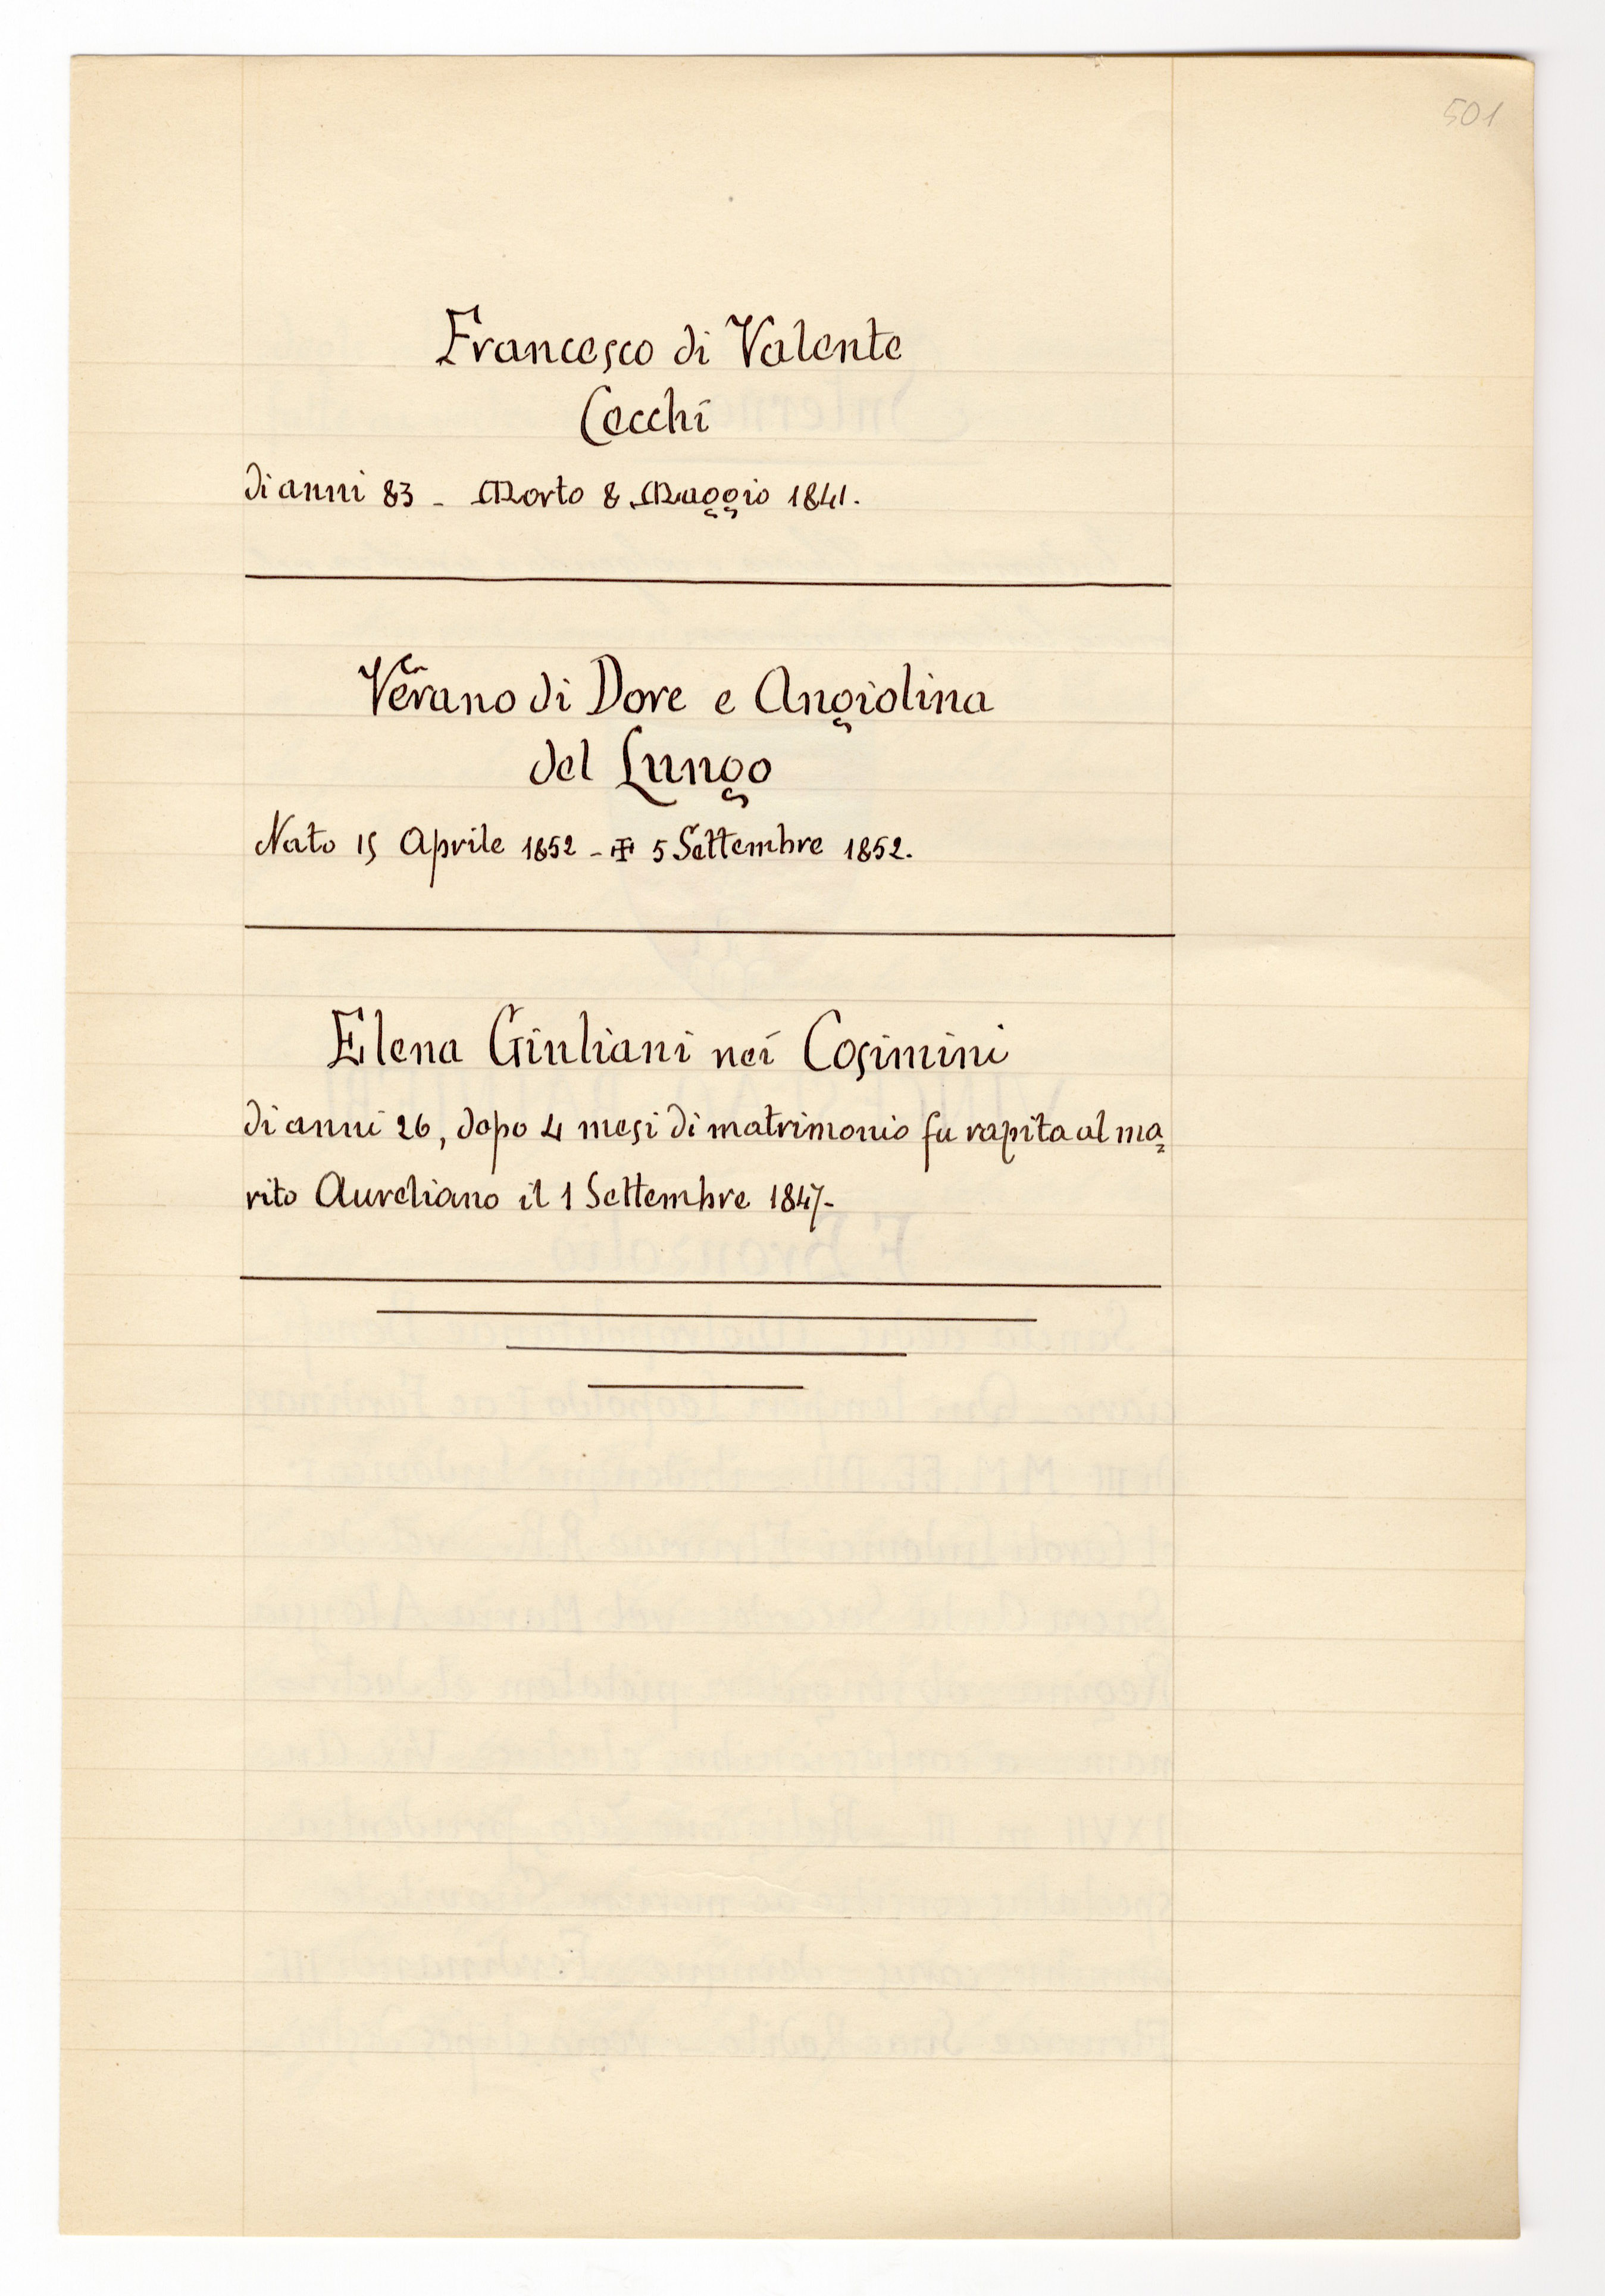 501
Francesco di Valente
Cecchi
di anni 83 - Morto 8 Maggio 1841.
Verano di Dore e Angiolina
del Lungo
Nato 15 Aprile 1852 - ✠ 5 Settembre 1852.
Elena Giuliani nei Cosimini
di anni 26, dopo 4 mesi di matrimonio fu rapita al ma=
rito Aureliano il 1 Settembre 1847-